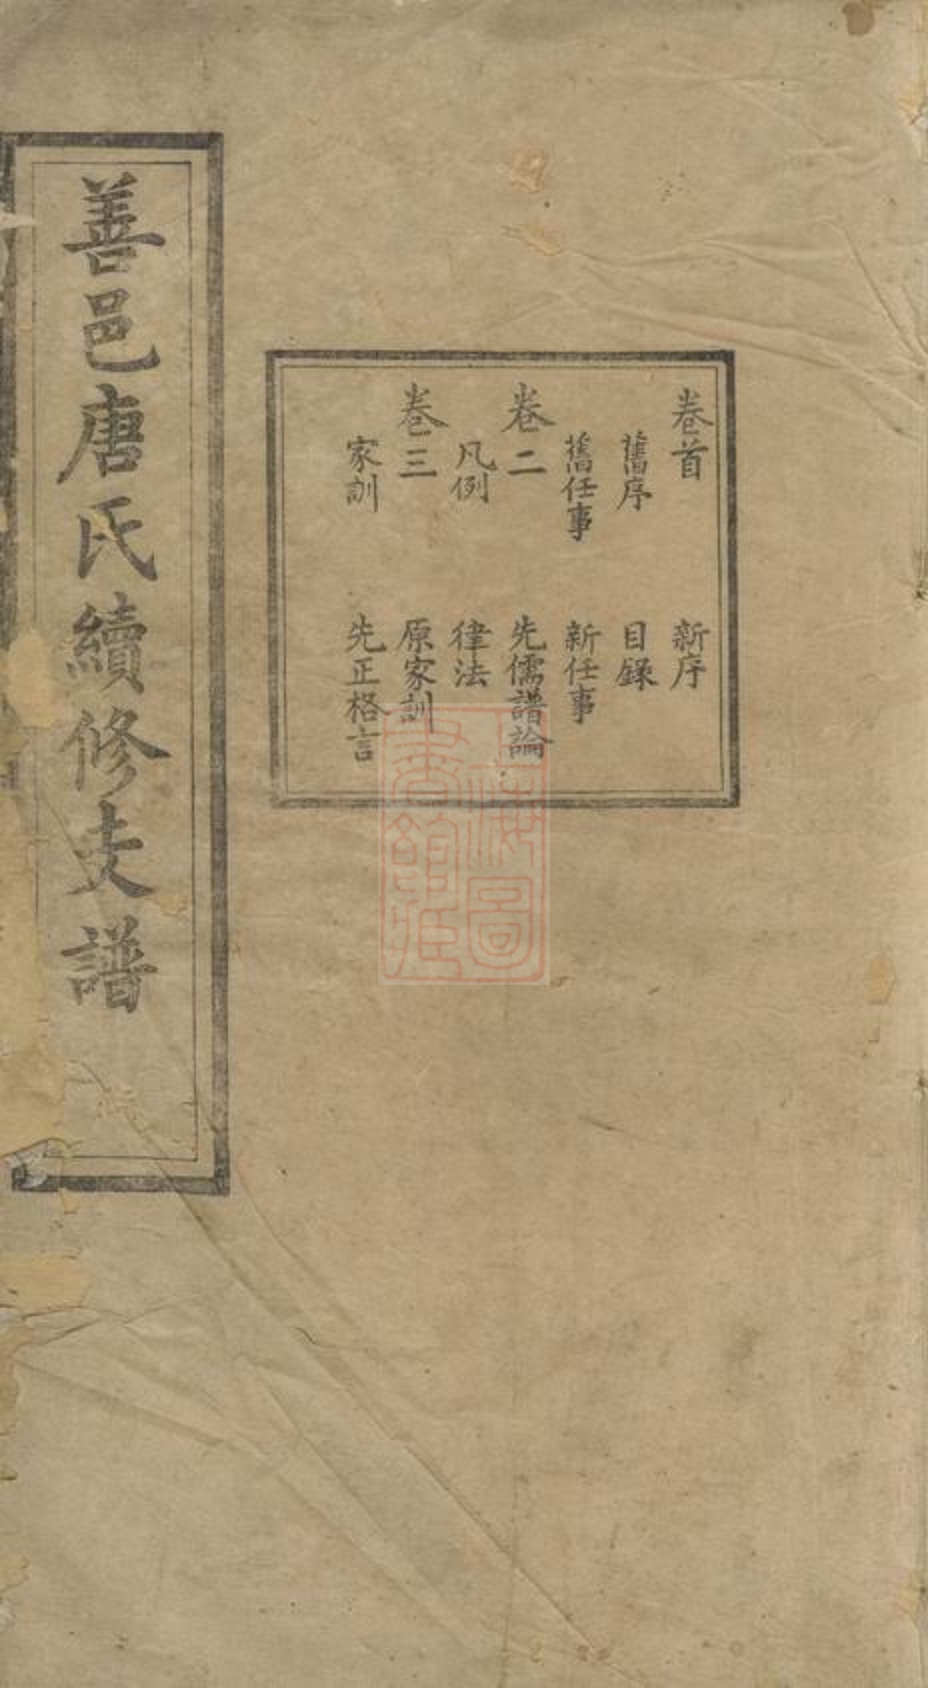 善邑唐氏續修支譜
卷首 新序
舊序 目録
舊任事 新任事
卷二 先儒譜論
凡例 律法
卷三 原家訓
家訓 先正格言
上海圖書館藏